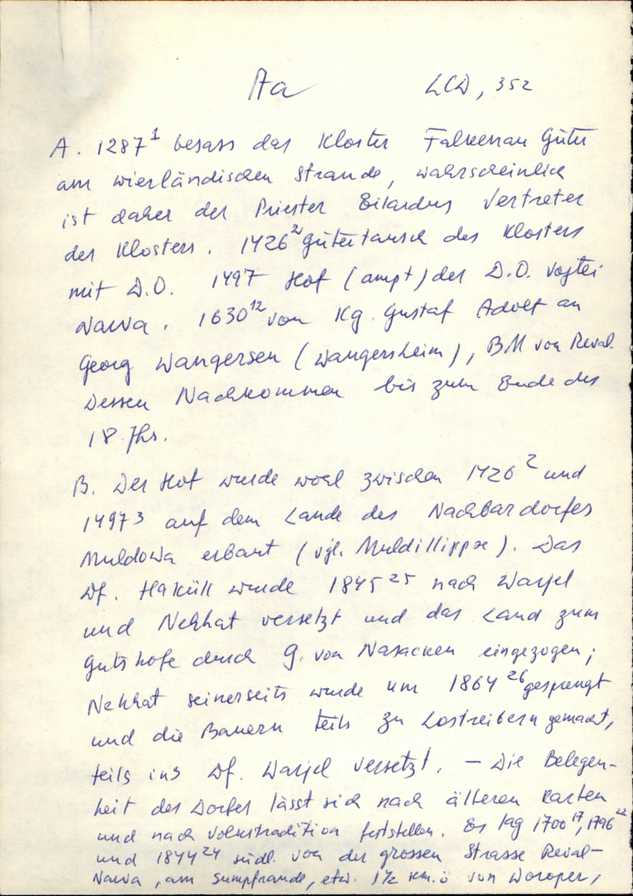 Aa LCD, 352
A. 1287¹ besass das Kloster Falkenau Güter
am wierländischen Strande, wahrscheinlich
ist daher der Priester Eilardus Vertreter
des Klosters. 1426² Gütertausch des Klosters
mit D.O. 1497 Hof (ampt) der D.O. Vogtei
Narva. 1630¹² von Kg. Gustaf Adolf an
Georg Wangersen (Wangersheim), BM von Reval.
Dessen Nachkommen bis zum Ende des
18. Jhrs.
B. Der Hof wurde wohl zwischen 1426² und
1497³ auf dem Lande des Nachbardorfes
Muldowa erbaut (vgl. Muldillippe). Das
Df. Haküll wurde 1845²⁵ nach Warjel
und Nekhat versetzt und das Land zum
Gutshofe durch G. von Nasacken eingezogen;
Nekhat seinerseits wurde um 1864²⁶ gesprengt
und die Bauern teils zu Lostreibern gemacht,
teils ins Df. Warjel versetzt. — Die Belegen-
heit des Dorfes lässt sich nach älteren Karten
und nach Volkstradition feststellen. Es lag 1700¹⁷, 1796²²
und 1844²⁴ südl. von der grossen Strasse Reval-
Narva, am Sumpfrande, etw. 1½ km. ö von Woroper,